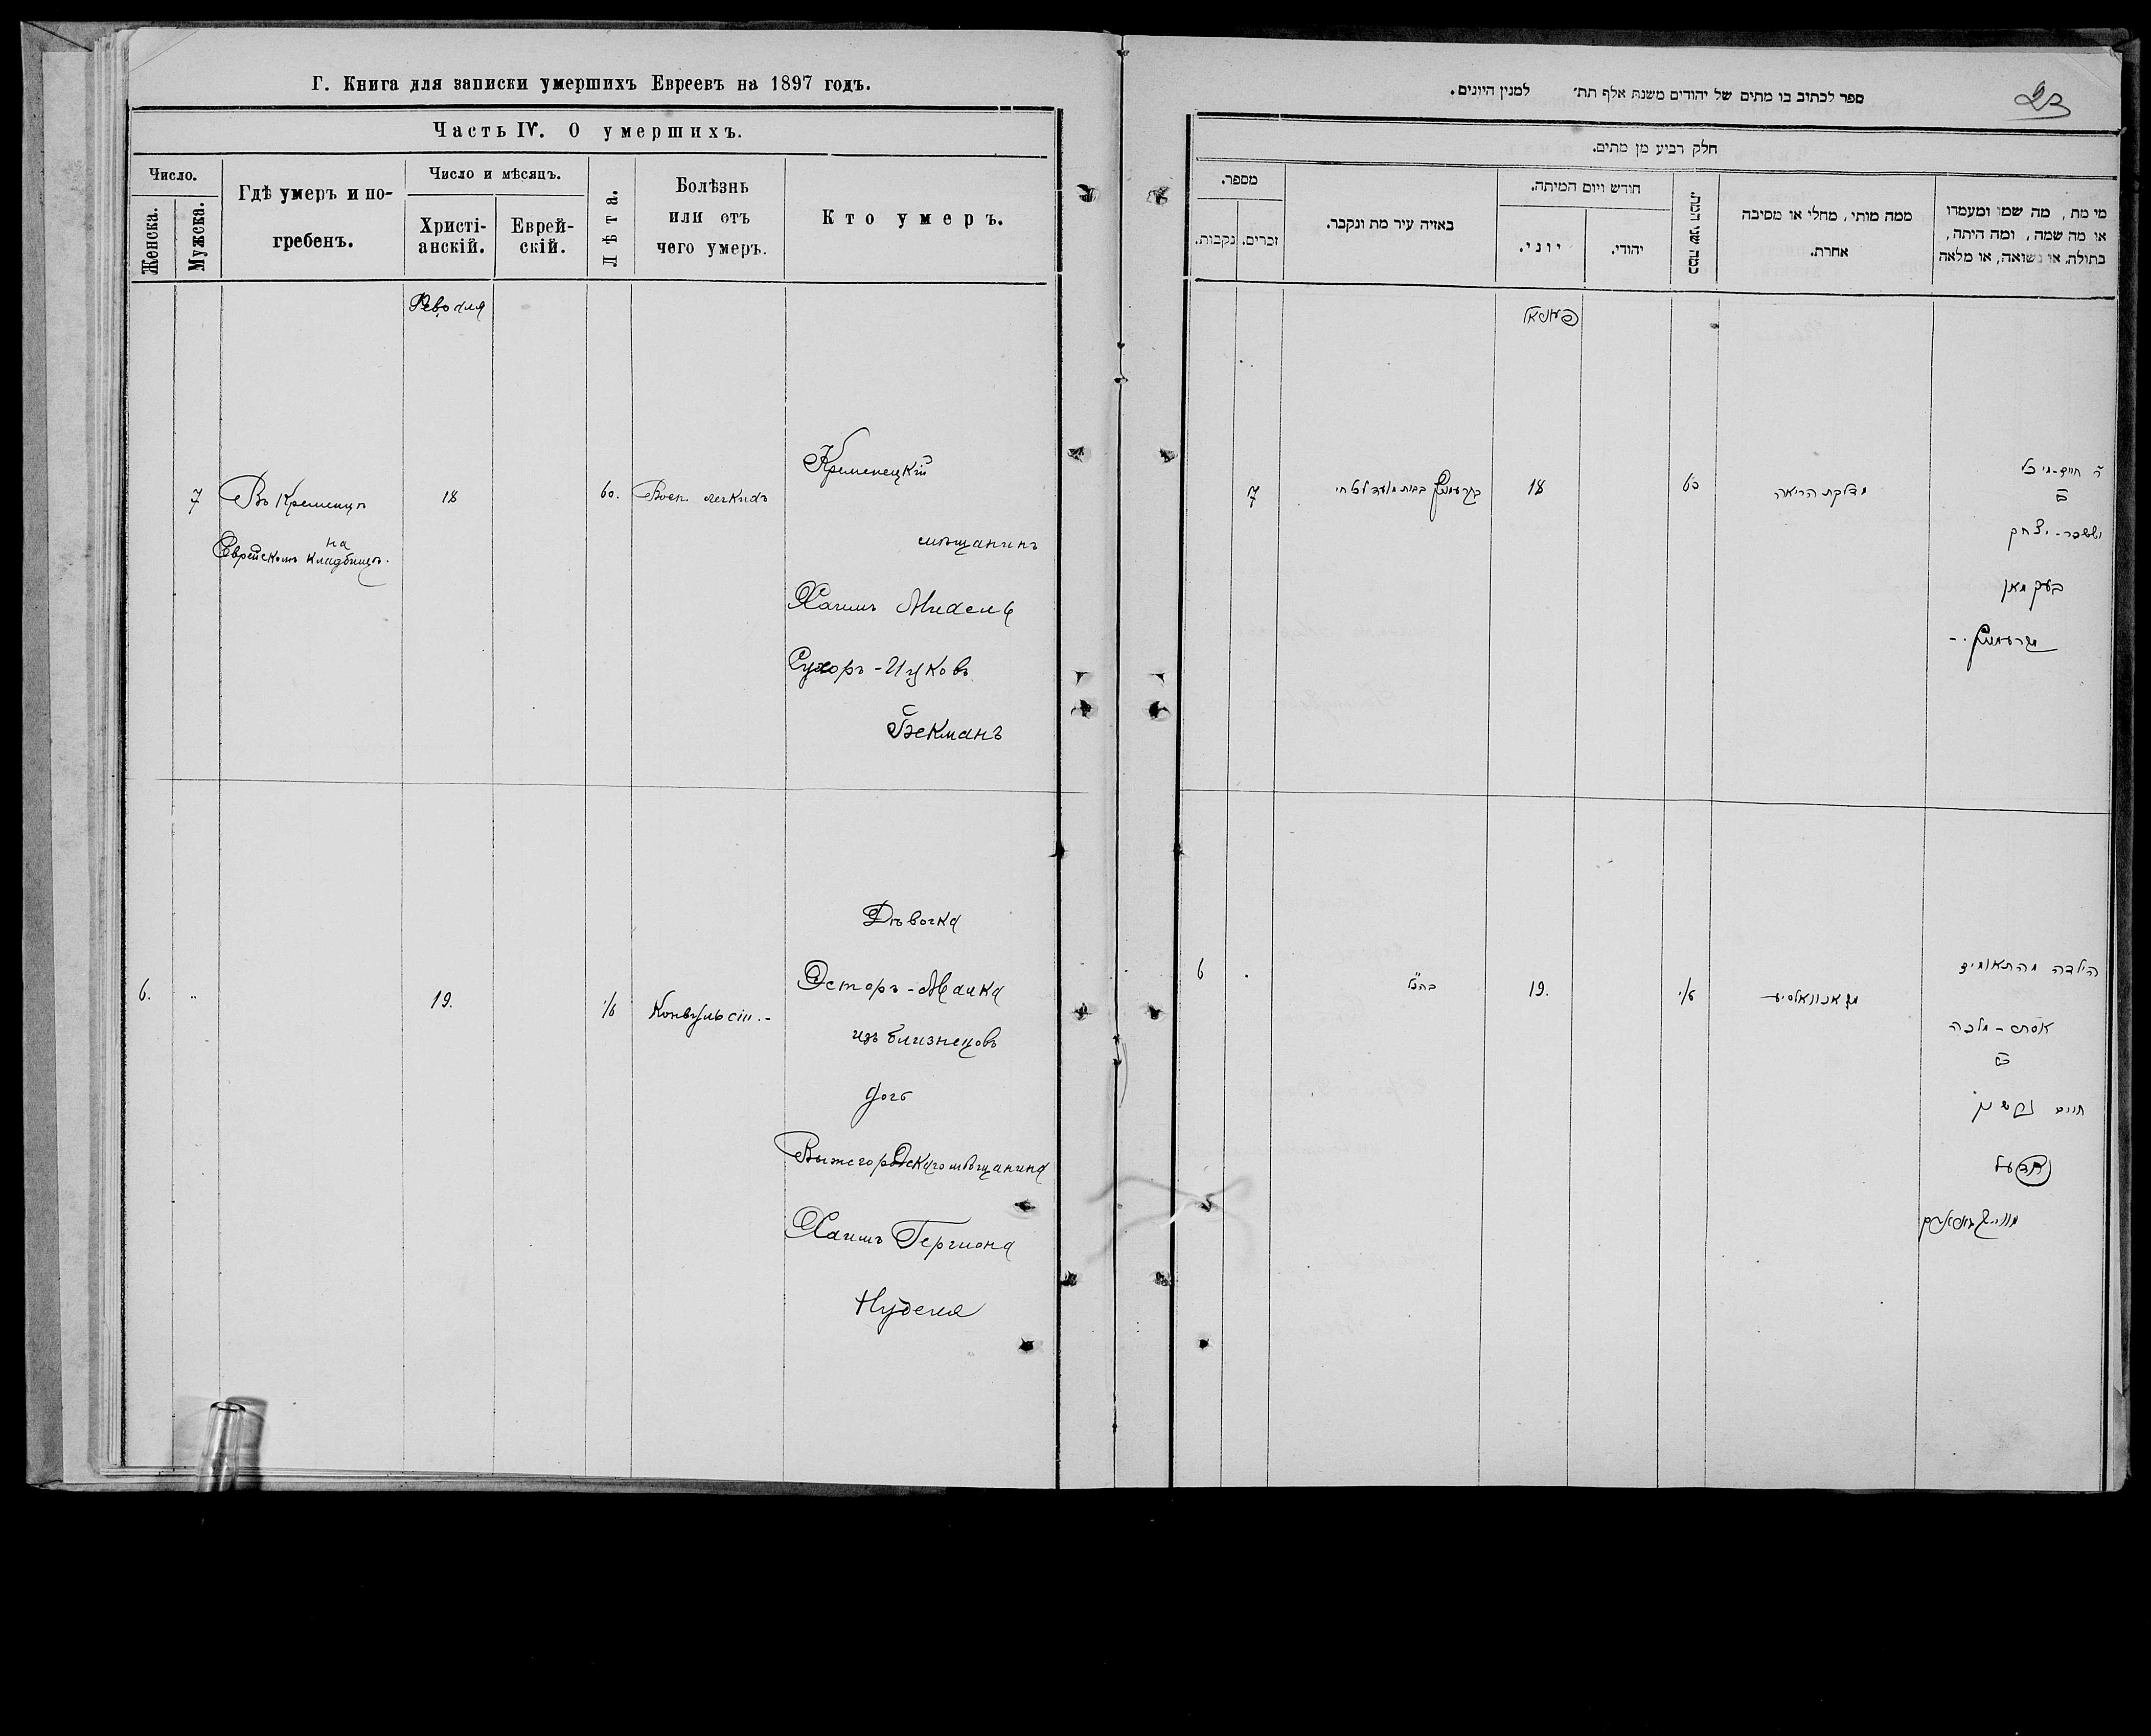 Г. Книга для записки умершихъ Евреевъ на 1897 годъ.
Часть IV. О умершихъ.
Число.
Женска.
Мужска.
Гдѣ умеръ и по-
гребенъ.
Число и мѣсяцъ.
Христі-
анскій.
Еврей-
скій.
Лѣта.
Болѣзнь
или отъ
чего умеръ.
Кто умеръ.
7
Въ Кременцѣ
на
Еврейскомъ кладбищѣ.
18
60.
Восп. легкихъ
Кременецкій
мѣщанинъ
Хаимъ Михель
Сухоръ-Ицковъ
Бекманъ
6.
19.
1/6
Конвульсіи.-
Дѣвочка
Эстеръ-Малка
изъ близнецовъ
дочь
Вышегородскаго мѣщанина
Хаимъ Гершона
Нуделя
ספר לכתוב בו מתים של יהודים משנת אלף תת׳ למנין היונים.
23
חלק רביע מן מתים.
מספר.
נקבות.
זכרים.
באיזה עיר מת ונקבר.
חודש ויום המיתה.
יוני.
יהודי.
ממה מותי, מחלי או מסיבה
אחרת.
מי מת, מה שמו ומעמדו
או מה שמה, ומה היתה,
בתולה, או נשואה, או מלאה
7
18
60
דלקת הריאה
יששכר-יצחק
בעקמאן
6
כהנ״ל
19.
1/6
הילדה מהתאומים
אסתר-מלכה
חיים